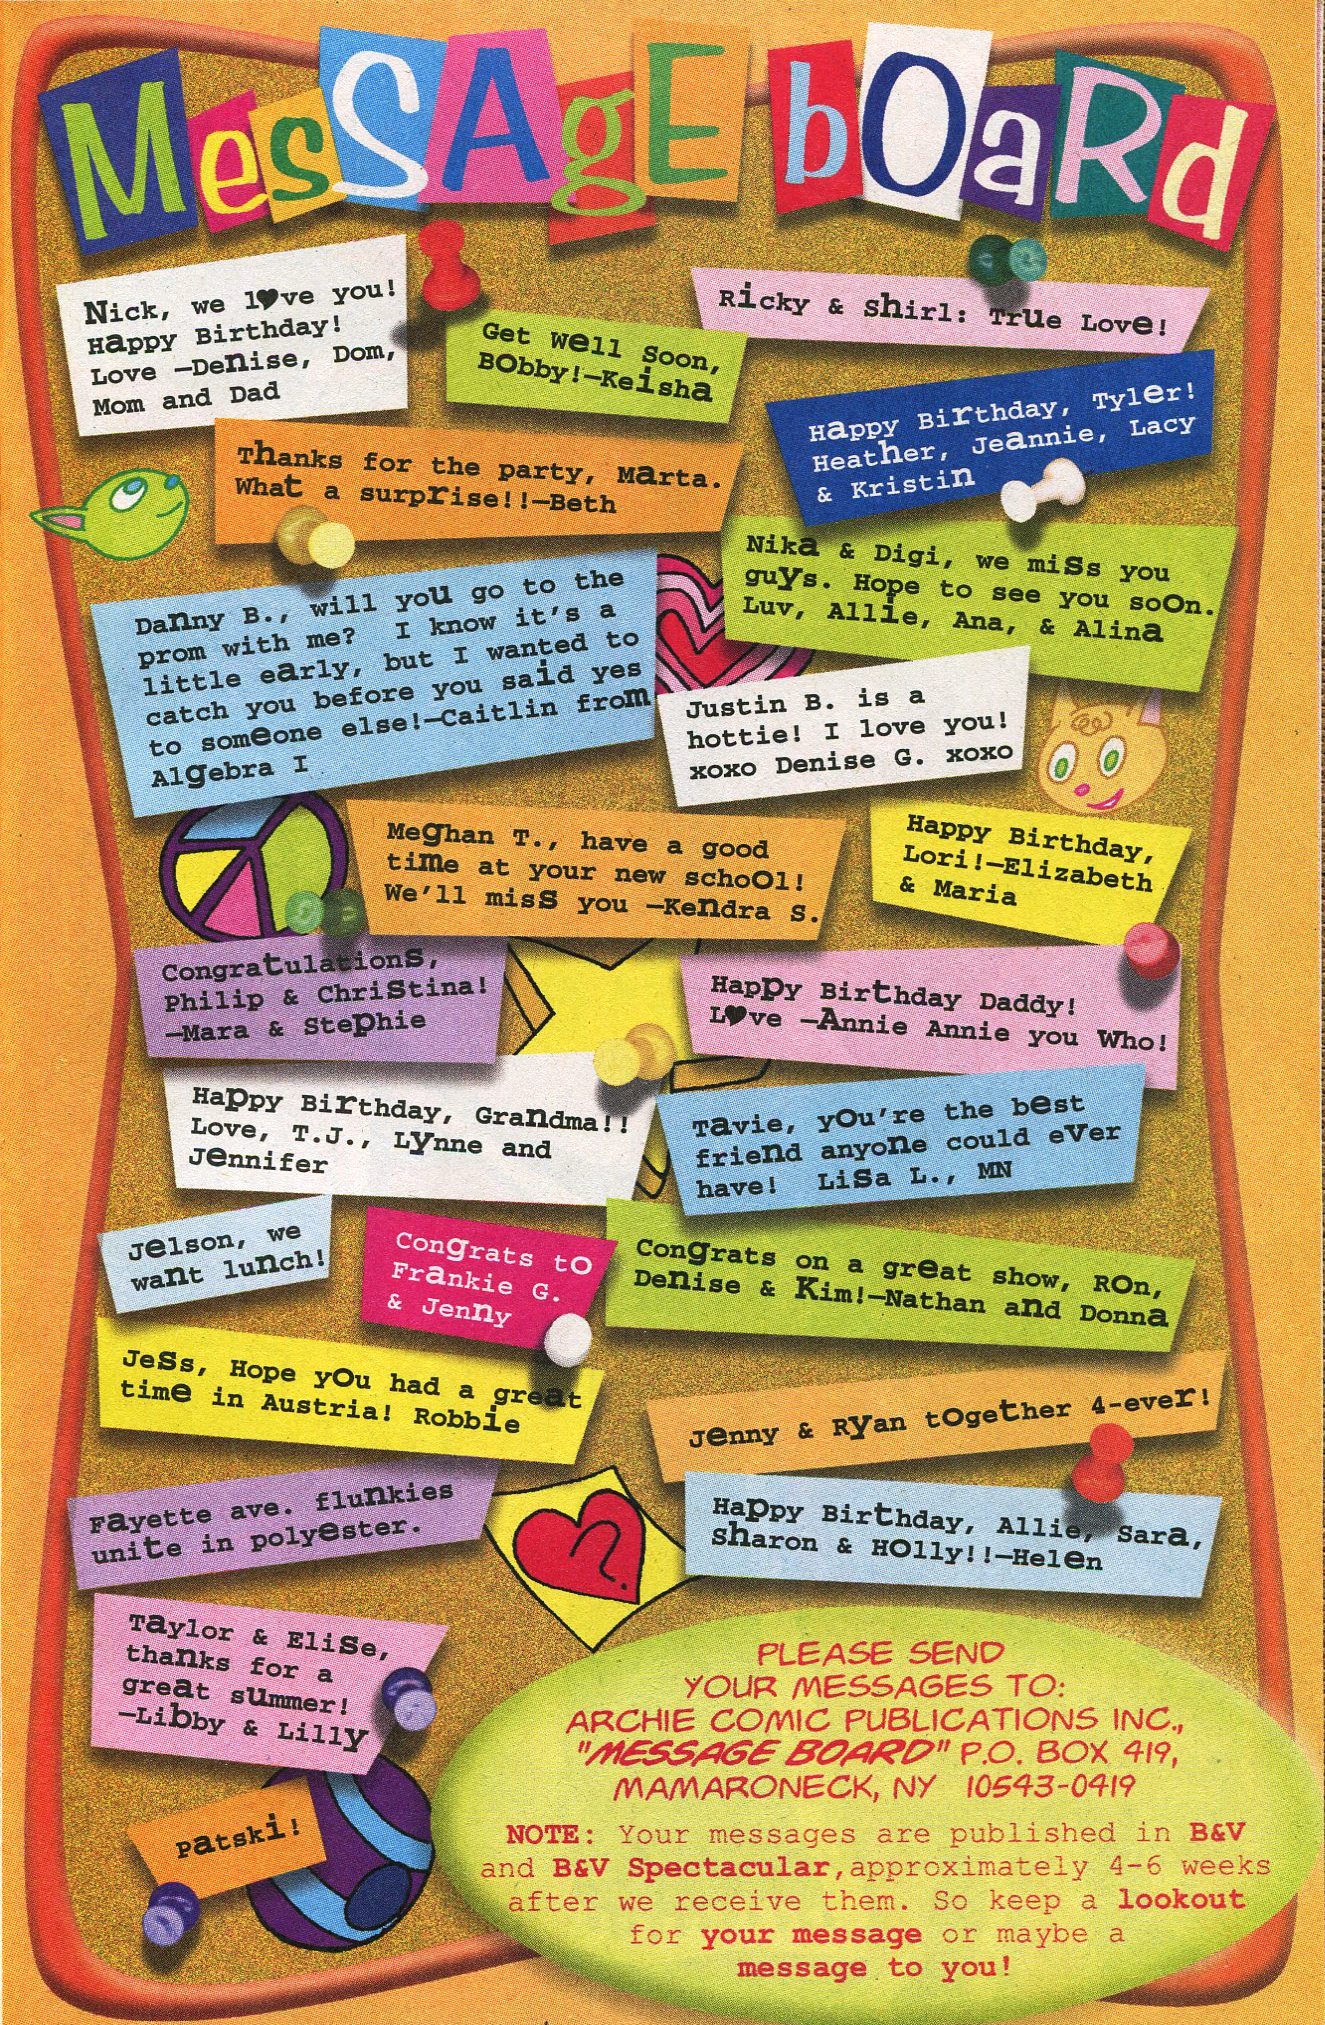 MesSAgE bOaRd
Nick, we l♥ve you!
Happy Birthday!
Love —Denise, Dom,
Mom and Dad
Get Well Soon,
BObby!—Keisha
Ricky & Shirl: True Love!
Happy Birthday, Tyler!
Heather, Jeannie, Lacy
& Kristin
Thanks for the party, Marta.
What a surprise!!—Beth
Nika & Digi, we miSs you
guys. Hope to see you soOn.
Luv, Allie, Ana, & Alina
Danny B., will you go to the
prom with me? I know it's a
little early, but I wanted to
catch you before you said yes
to someone else!—Caitlin from
Algebra I
Justin B. is a
hottie! I love you!
xoxo Denise G. xoxo
Meghan T., have a good
time at your new schoOl!
We'll misS you —Kendra S.
Happy Birthday,
Lori!—Elizabeth
& Maria
CongratulationS,
Philip & ChriStina!
—Mara & Stephie
Happy Birthday Daddy!
L♥ve —Annie Annie you Who!
Happy Birthday, Grandma!!
Love, T.J., Lynne and
Jennifer
Tavie, yOu're the best
friend anyone could eVer
have! LiSa L., MN
Jelson, we
want lunch!
Congrats tO
Frankie G.
& Jenny
Congrats on a great show, ROn,
Denise & Kim!—Nathan and Donna
JeSs, Hope yOu had a great
time in Austria! Robbie
Jenny & Ryan tOgether 4-ever!
Fayette ave. flunkies
unite in polyester.
Happy Birthday, Allie, Sara,
Sharon & HOlly!!—Helen
Taylor & EliSe,
thanks for a
great summer!
—Libby & Lilly
Patski!
PLEASE SEND
YOUR MESSAGES TO:
ARCHIE COMIC PUBLICATIONS INC.,
"MESSAGE BOARD" P.O. BOX 419,
MAMARONECK, NY 10543-0419
NOTE: Your messages are published in B&V
and B&V Spectacular,approximately 4-6 weeks
after we receive them. So keep a lookout
for your message or maybe a
message to you!